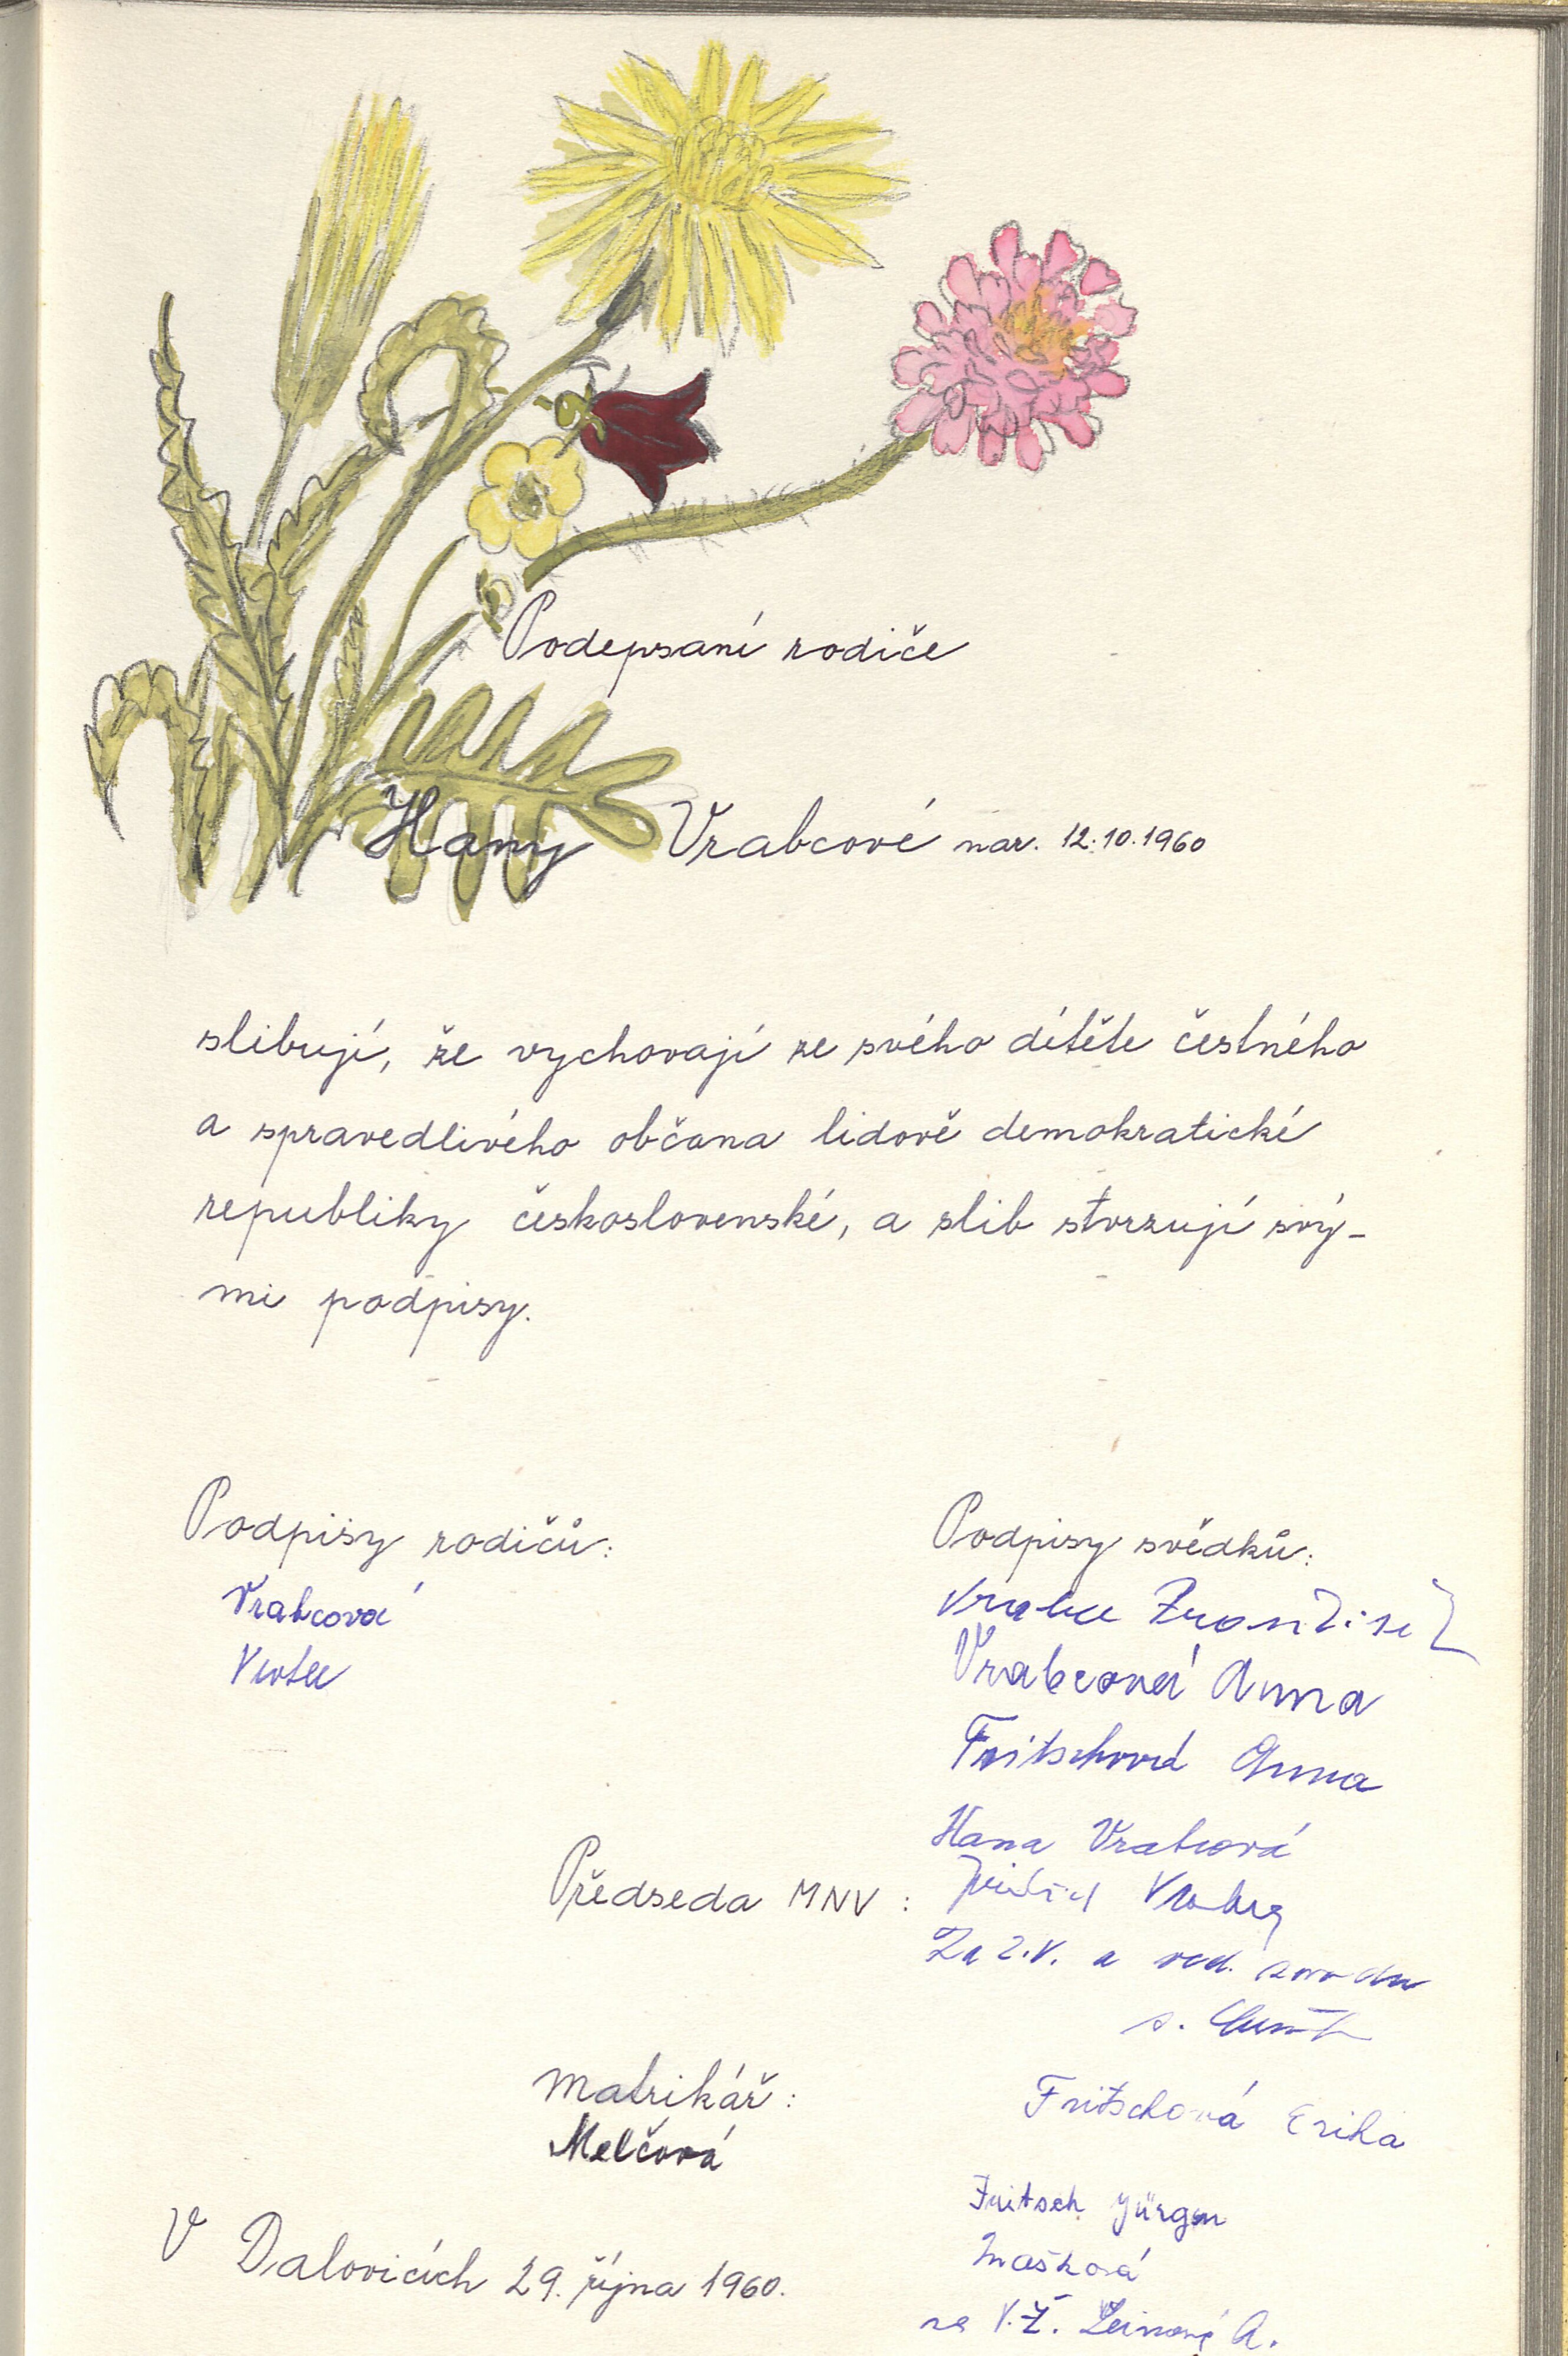 Podepsaní rodiče
Hany Vrabcové nar. 12.10.1960
slibují, že vychovají ze svého dítěte čestného
a spravedlivého občana lidově demokratické
republiky československé, a slib stvrzují svý-
mi podpisy.
Podpisy rodičů:
Vrabcová
Podpisy svědků:
Vrabec František
Vrabcová Anna
Fritschová Anna
Hana Vrabcová
Předseda MNV:
Za Z.V. a ved. závodu
s.
Matrikář:
Melčová
Fritschová Erika
Fritsch Jürgen
Mašková
za V.Ž. A.
V Dalovicích 29. října 1960.